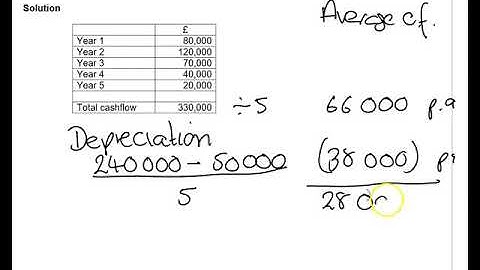 Solution
Average cf.
£
Year 1 80,000
Year 2 120,000
Year 3 70,000
Year 4 40,000
Year 5 20,000
Total cashflow 330,000 ÷5 66 000 p.a
Depreciation
240000 - 50000 (38 000)
5 28 00